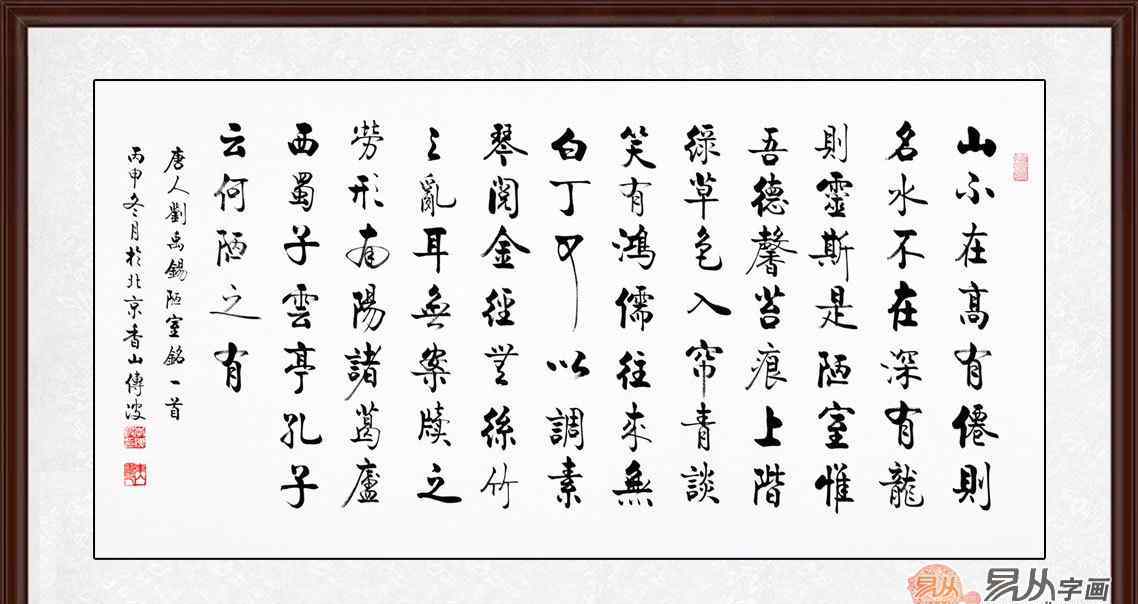 山不在高有僊則
名水不在深有龍
則靈斯是陋室惟
吾德馨苔痕上階
綠草色入帘青談
笑有鴻儒往來無
白丁可以調素
琴閱金經無絲竹
之亂耳無案牘之
勞形南陽諸葛廬
西蜀子雲亭孔子
云何陋之有
唐人劉禹錫陋室銘一首
丙申冬月於北京香山傳波
易从 易从字画